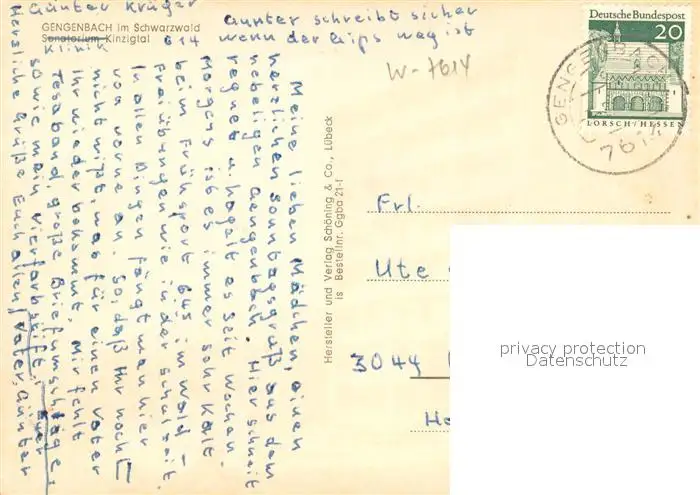 Günter Krüger
GENGENBACH im Schwarzwald
Sanatorium Kinzigtal
Klinik
614
Günter schreibt sicher
wenn der Gips weg ist
W-7614
Deutsche Bundespost
20
LORSCH/HESSEN
GENGENBACH
7614
Meine lieben Mädchen, einen
herzlichen Sonntagsgruß aus dem
nebeligen Gengenbach. Hier schneit
regnet u. hagelt es seit Wochen.
Morgens ist es immer sehr kalt
beim Frühsport 6 45 im Wald –
Freiübungen wie in der Schulzeit.
In allen Dingen fängt man hier
von vorne an. So, daß Ihr noch
nicht wißt, was für einen Vater
Ihr wieder bekommt. Mir fehlt
Tesaband, große Briefumschläge,
sowie mein Vierfarbstift. Euer
Herzliche Grüße Euch allen, Vater, Günter
Hersteller und Verlag Schöning & Co., Lübeck
is Bestellnr. Ggba 21-f
Frl.
Ute
3044
He
privacy protection
Datenschutz